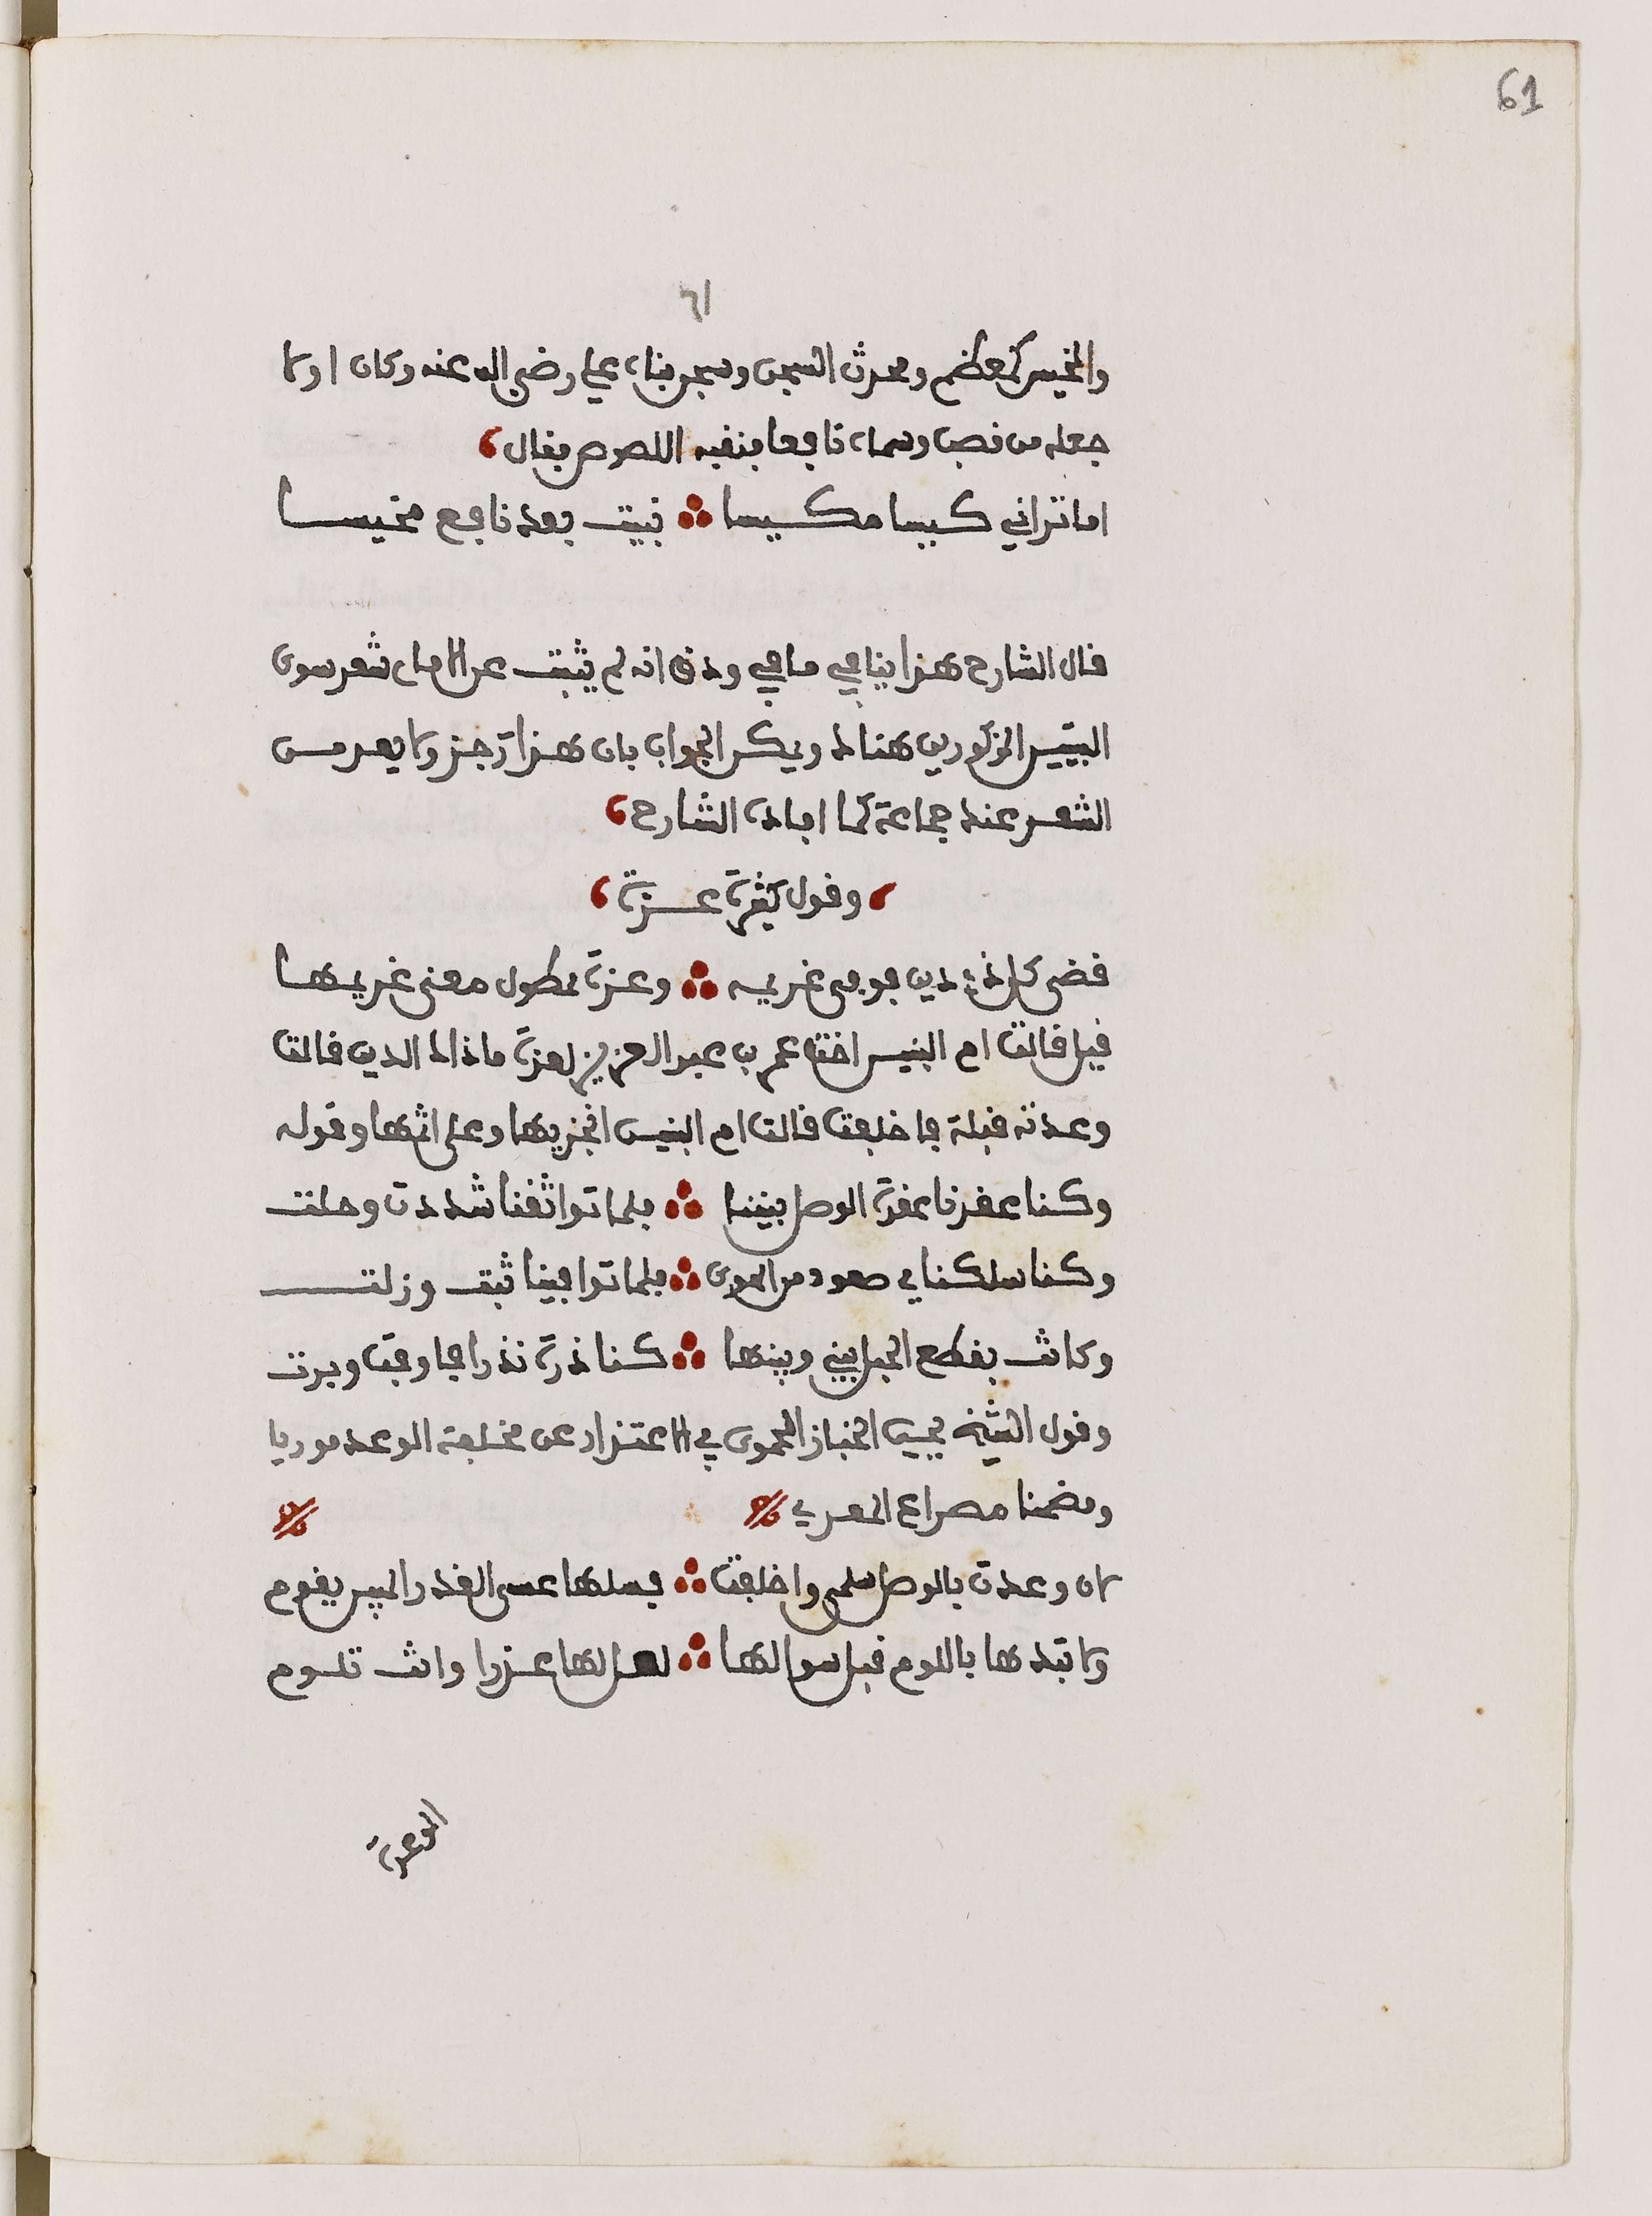 61
٦١
والمخيس كمعظم ومحدث السجن وسجن بناه علي رضي الله عنه وكان اولا
جعله من قصب وسماه نافعا فنقبه اللصوص فقال
اما تراني كيسا مكيسا ∴ بنيت بعد نافع مخيسا
قال الشارح هذا ينافي ما في ودق انه لم يثبت عن الامام شعر سوى
البيتين المذكورين هناك ويمكن الجواب بان هذا رجز ولا يعد من
الشعر عند جماعة كما افاده الشارح
وقول كثير عزة
قضى كل ذي دين فوفى غريمه ∴ وعزة ممطول معنى غريمها
قيل قالت ام البنين اخت عمر بن عبد العزيز لعزة ما ذاك الدين قالت
وعدته قبلة فاخلفت قالت ام البنين انجزيها وعلي اثمها وقوله
وكنا عقدنا عقدة الوصل بيننا ∴ فلما تواثقنا شددت وحلت
وكنا سلكنا في صعود من الهوى ∴ فلما توافينا ثبت وزلت
وكانت بقطع الحبل بيني وبينها ∴ كناذرة نذرا فاوفت وبرت
وقول الشيخ يحيى الخباز الحموي في الاعتذار عن مخلفة الوعد موريا
ومضمنا مصراع المعري
لان وعدت بالوصل سلمى واخلفت ∴ فسلها عسى العذر المبين يقوم
ولا تبدها باللوم قبل سوالها ∴ لعل لها عذرا وانت تلوم